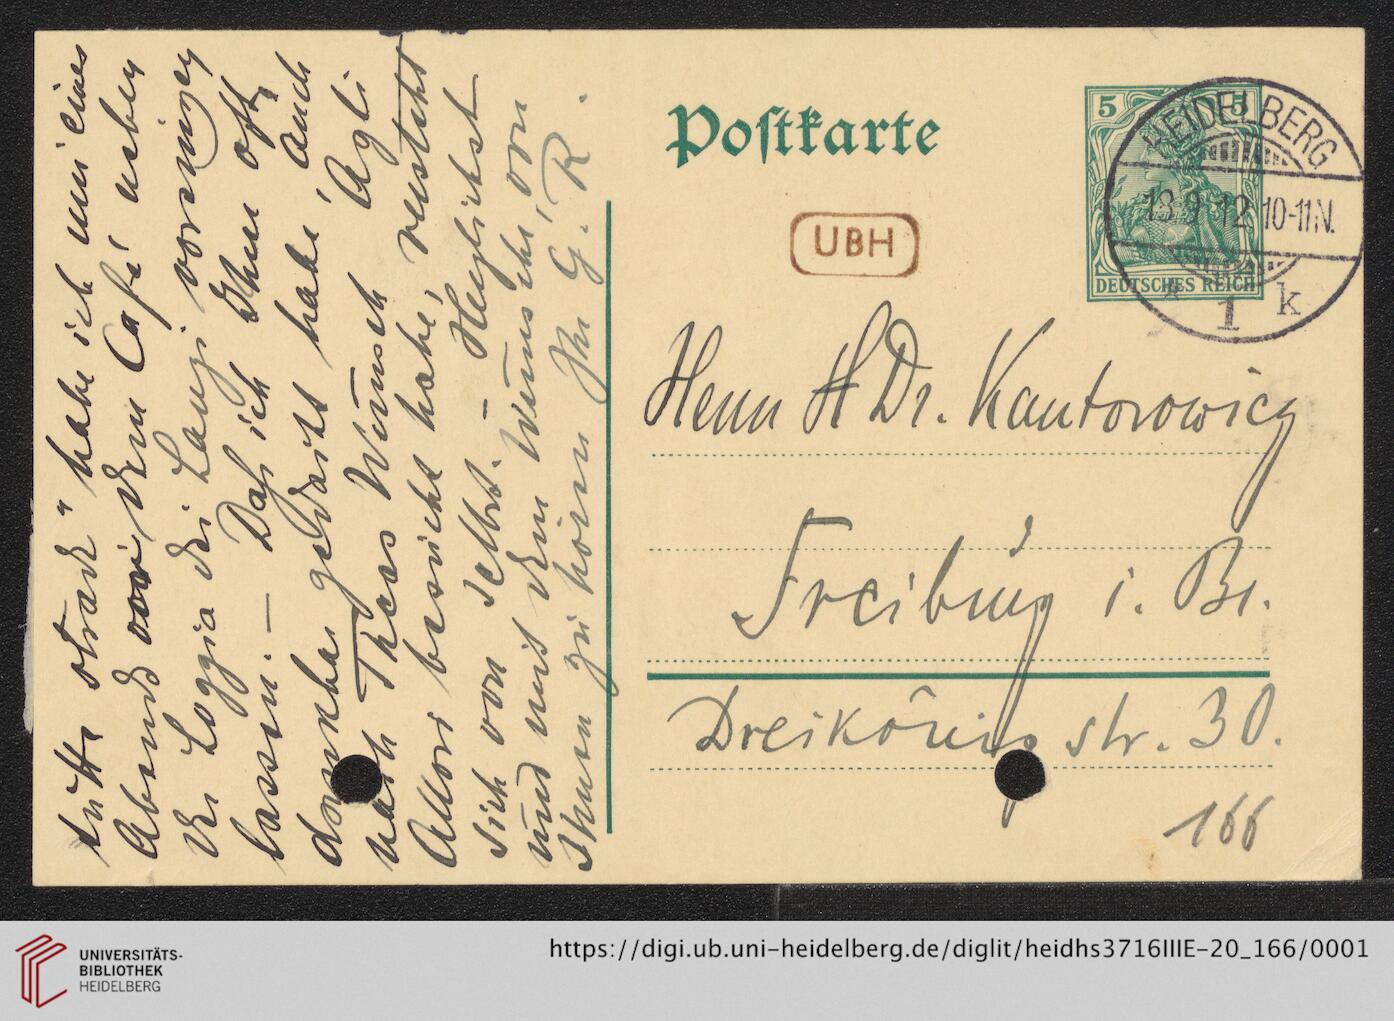 tutta strada" habe ich mir eines
Abends vor dem Café neben
der Loggia dei Lanzi vorsingen
lassen. — Daß ich Ihrer oft
dankbar gedacht habe, auch
nach Theas Wunsch Agli
Allori besucht habe, versteht
sich von selbst. – Herzlichst
und mit dem Wunsche, von
Ihnen zu hören Ihr G. R.
Postkarte
5 5
DEUTSCHES REICH
HEIDELBERG
13.9.12. 10-11N.
* 1 k
UBH
Herrn H Dr. Kantorowicz
Freiburg i. Br.
Dreikönigstr. 30.
166
UNIVERSITÄTS-
BIBLIOTHEK
HEIDELBERG
https://digi.ub.uni-heidelberg.de/diglit/heidhs3716IIIE-20_166/0001